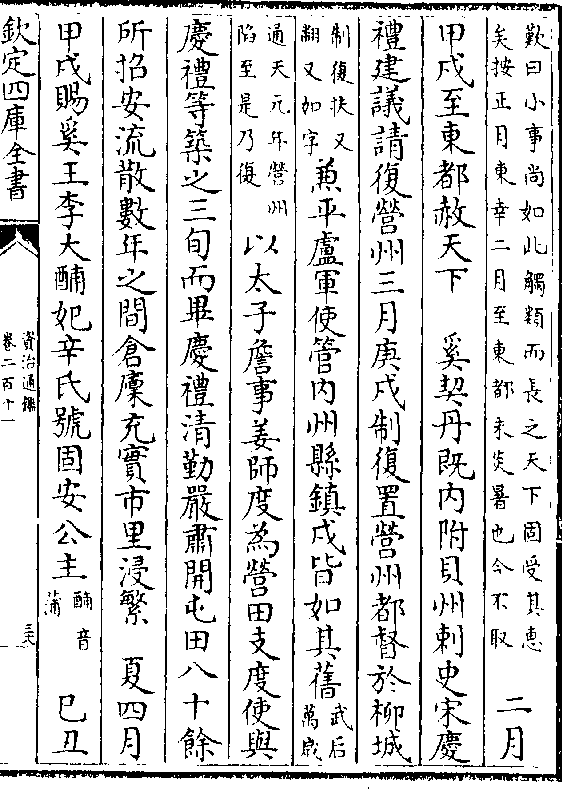 歎曰小事尚如此觸類而長之天下固受其惠
矣按正月東幸二月至東都未炎暑也今不取
二月
甲戌至東都赦天下　奚契丹既内附貝州刺史宋慶
禮建議請復營州三月庚戌制復置營州都督於柳城
制復扶又
翻又如字
兼平盧軍使管内州縣鎮戍皆如其舊
武后
萬歲
通天元年營州
陷至是乃復
以太子詹事姜師度為營田支度使與
慶禮等築之三旬而畢慶禮清勤嚴肅開屯田八十餘
所招安流散數年之間倉廩充實市里浸繁　夏四月
甲戌賜奚王李大酺妃辛氏號固安公主
酺音
蒲
巳丑
欽定四庫全書
資治通鑑
卷二百十一
三六